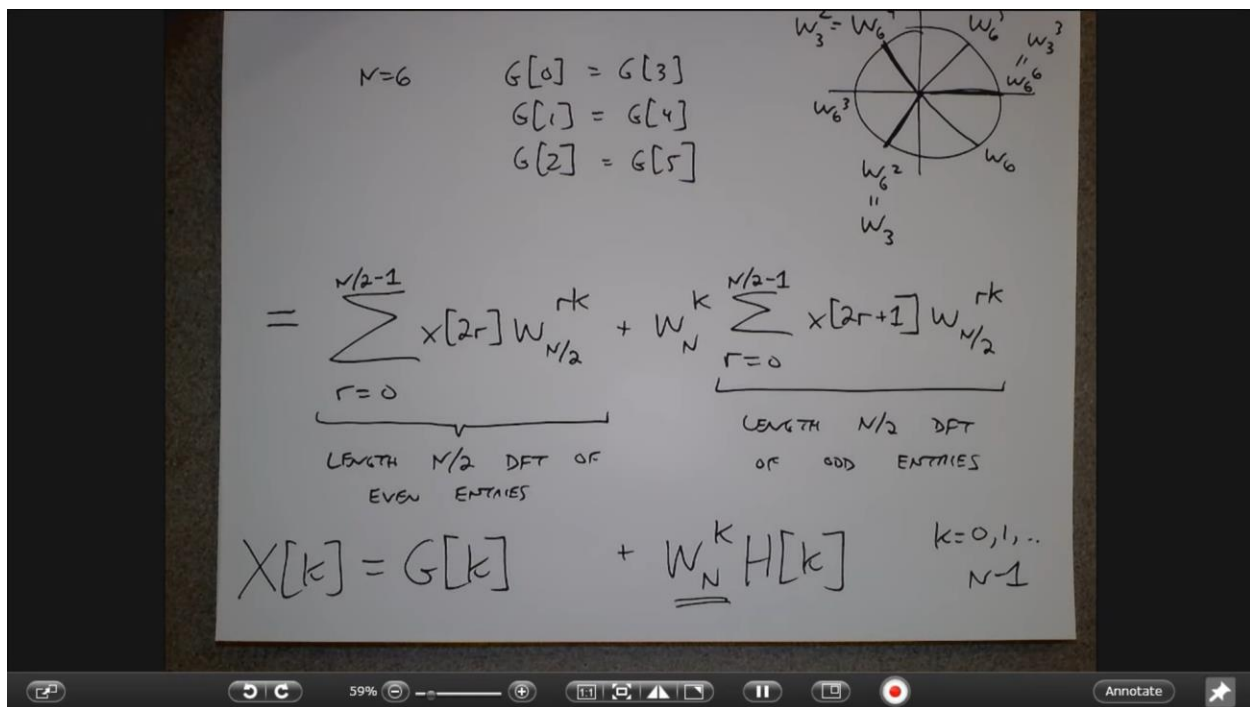 N=6
G[0] = G[3]
G[1] = G[4]
G[2] = G[5]
W_3^2 = W_6^4
W_6^5
W_3^3
"
W_6^6
W_6^3
W_6
W_6^2
"
W_3
= \sum_{r=0}^{N/2-1} x[2r] W_{N/2}^{rk} + W_N^k \sum_{r=0}^{N/2-1} x[2r+1] W_{N/2}^{rk}
LENGTH N/2 DFT OF
EVEN ENTRIES
LENGTH N/2 DFT
OF ODD ENTRIES
X[k] = G[k] + W_N^k H[k]
k=0,1,..
N-1
59%
1:1
Annotate